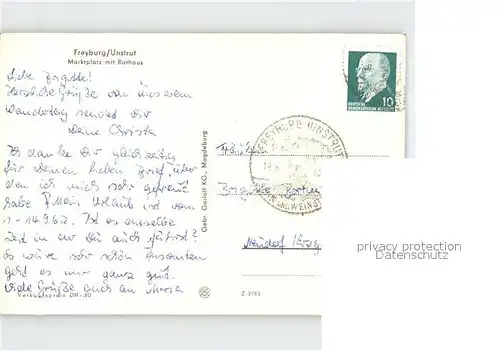 Freyburg/Unstrut
Marktplatz mit Rathaus
Liebe Brigitte!
Herzliche Grüße von diesem
Wandertag sendet Dir
Deine Christa
Ich danke Dir gleichzeitig
für Deinen lieben Brief, über
den ich mich sehr gefreut
habe. Mein Urlaub ist vom
1.-14.9.62. Ist es dieselbe
Zeit in der Du auch fährst?
Es wäre sehr schön. Ansonsten
geht es mir ganz gut.
Viele Grüße auch an
Verkaufspreis DM -,20
Z 9783
Gebr. Garloff KG., Magdeburg
DEUTSCHE
DEMOKRATISCHE REPUBLIK
10
FREYBURG (UNSTRUT)
Fräulein
Brigitte
Neudorf
privacy protection
Datenschutz